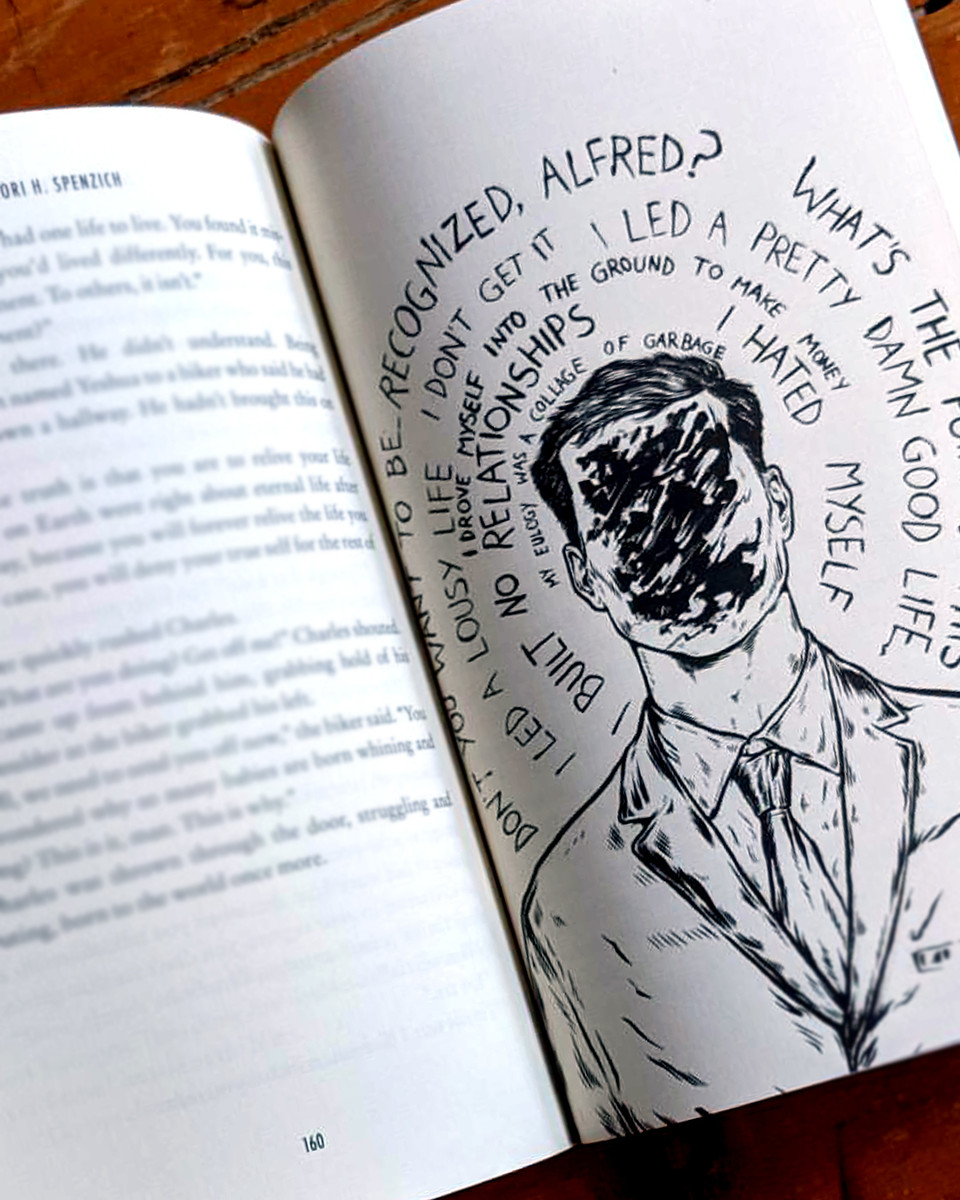 ORI H. SPENZICH
had one life to live. You found it
you'd lived differently. For you, this
ment. To others, it isn't."
there. He didn't understand. Being
named Yeshua to a biker who said he had
down a hallway. He hadn't brought this on
truth is that you are to relive your life
on Earth were right about eternal life after
because you will forever relive the life you
case, you will deny your true self for the rest of
quickly rushed Charles.
What are you doing? Get off me!" Charles shouted.
came up from behind him, grabbing hold of his
as the biker grabbed his left.
the biker said. "You
wondered why so many babies are born whining and
This is it, man. This is why."
Charles was thrown through the door, struggling and
born to the world once more.
160
DON'T YOU WANT TO BE RECOGNIZED, ALFRED?
WHAT'S THE
THIS
I LED A LOUSY LIFE
I DON'T GET IT
I LED A PRETTY DAMN GOOD LIFE,
I DROVE MYSELF INTO THE GROUND TO MAKE MONEY
I BUILT NO RELATIONSHIPS
I HATED MYSELF
MY EULOGY WAS A COLLAGE OF GARBAGE